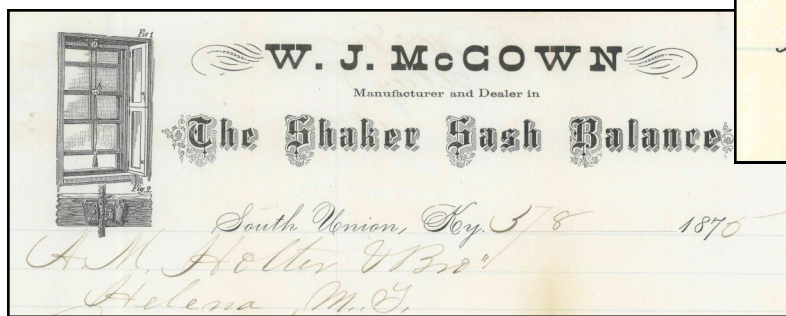 Fig 1
W. J. McCOWN
Manufacturer and Dealer in
The Shaker Sash Balance
Fig. 2
South Union, Ky. 3/8 1875
A. M. Holter & Bro"
Helena, M. T.